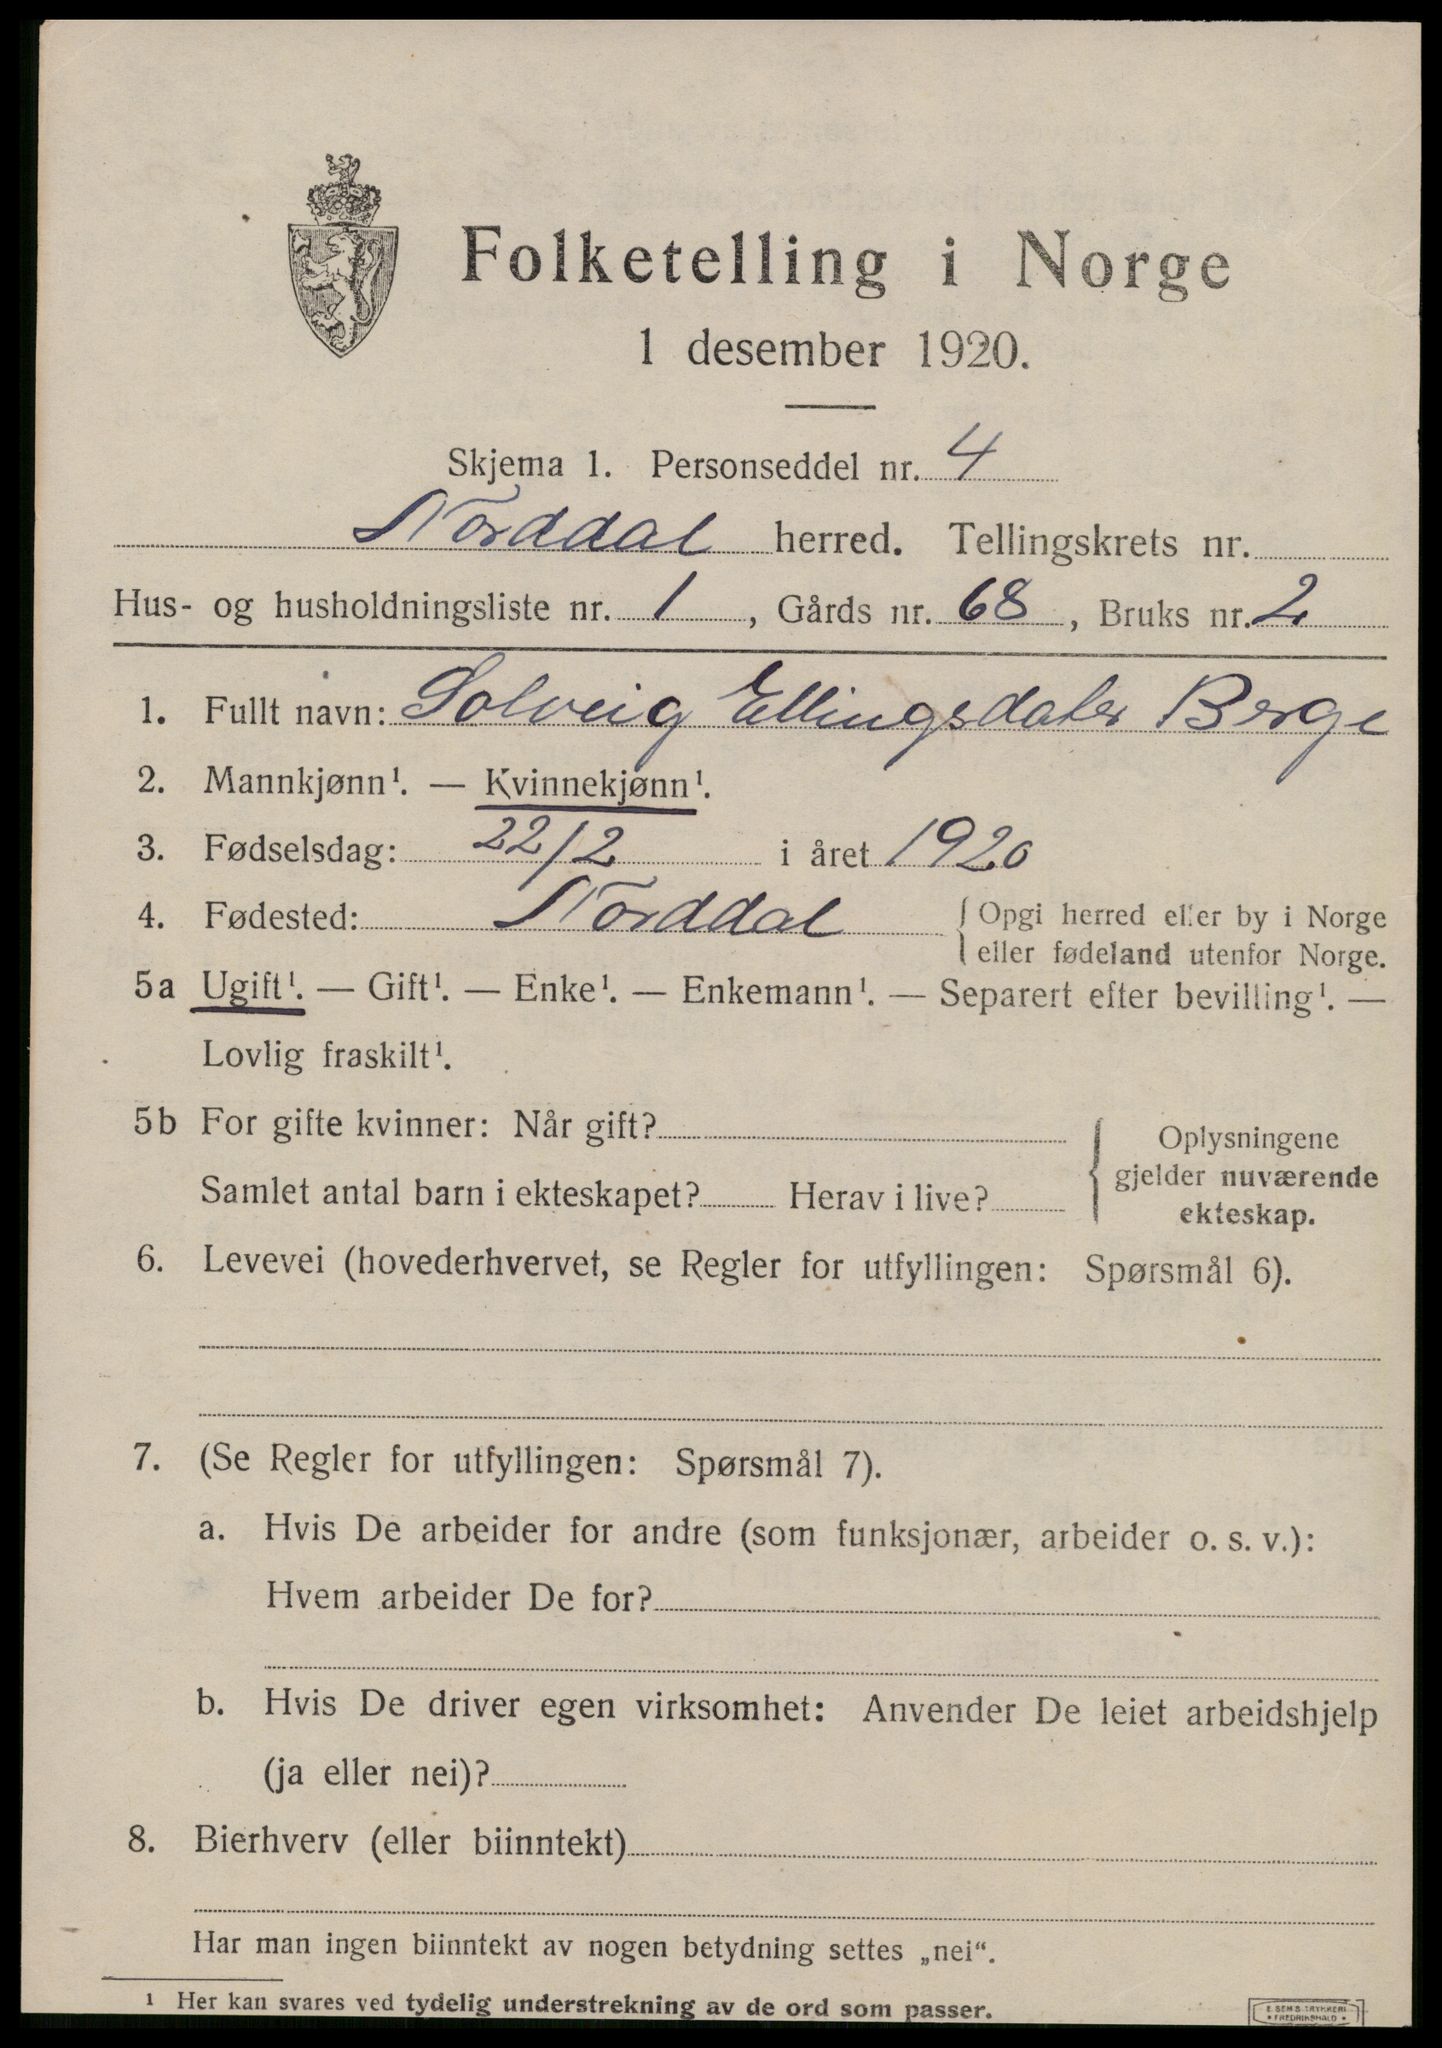 Folketelling i Norge
1 desember 1920.
Skjema 1. Personseddel nr. 4
Norddal herred. Tellingskrets nr.
Hus- og husholdningsliste nr. 1, Gårds nr. 68, Bruks nr. 2
1. Fullt navn: Solveig Ellingsdater Berge
2. Mannkjønn¹. — Kvinnekjønn¹.
3. Fødselsdag: 22/2 i året 1920
4. Fødested: Norddal { Opgi herred eller by i Norge
eller fødeland utenfor Norge.
5a Ugift¹. — Gift¹. — Enke¹. — Enkemann¹. — Separert efter bevilling¹. —
Lovlig fraskilt¹.
5b For gifte kvinner: Når gift?
Samlet antal barn i ekteskapet? Herav i live?
{ Oplysningene
gjelder nuværende
ekteskap.
6. Levevei (hovederhvervet, se Regler for utfyllingen: Spørsmål 6).
7. (Se Regler for utfyllingen: Spørsmål 7).
a. Hvis De arbeider for andre (som funksjonær, arbeider o. s. v.):
Hvem arbeider De for?
b. Hvis De driver egen virksomhet: Anvender De leiet arbeidshjelp
(ja eller nei)?
8. Bierhverv (eller biinntekt)
Har man ingen biinntekt av nogen betydning settes „nei“.
¹ Her kan svares ved tydelig understrekning av de ord som passer.
E. SEMS TRYKKERI
• FREDRIKSHALD •